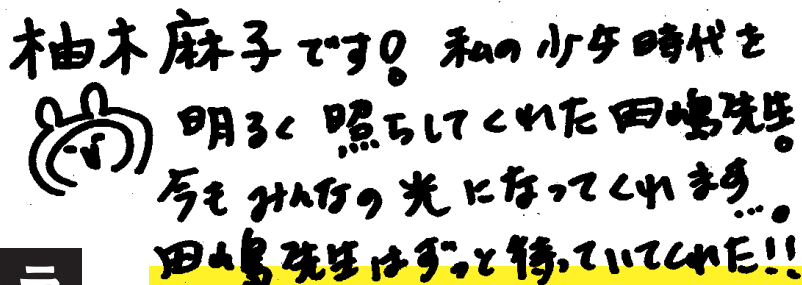 柚木麻子です! 私の少女時代を
明るく照らしてくれた田嶋先生。
今もみんなの光になってくれます…。
田嶋先生はずっと待っていてくれた!!